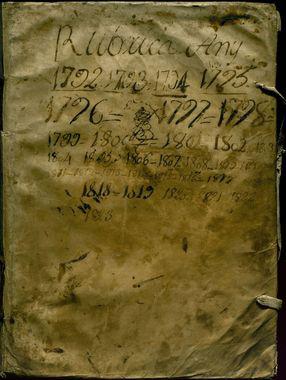 Rubrica Any
1792 1793 1794 1795
1796 = 1797 = 1798 =
1799 - 1800 = 1801 1802 1803
1804 1805 - 1806 - 1807 1808 1809
1818 - 1819 1820 1821 1822
1823